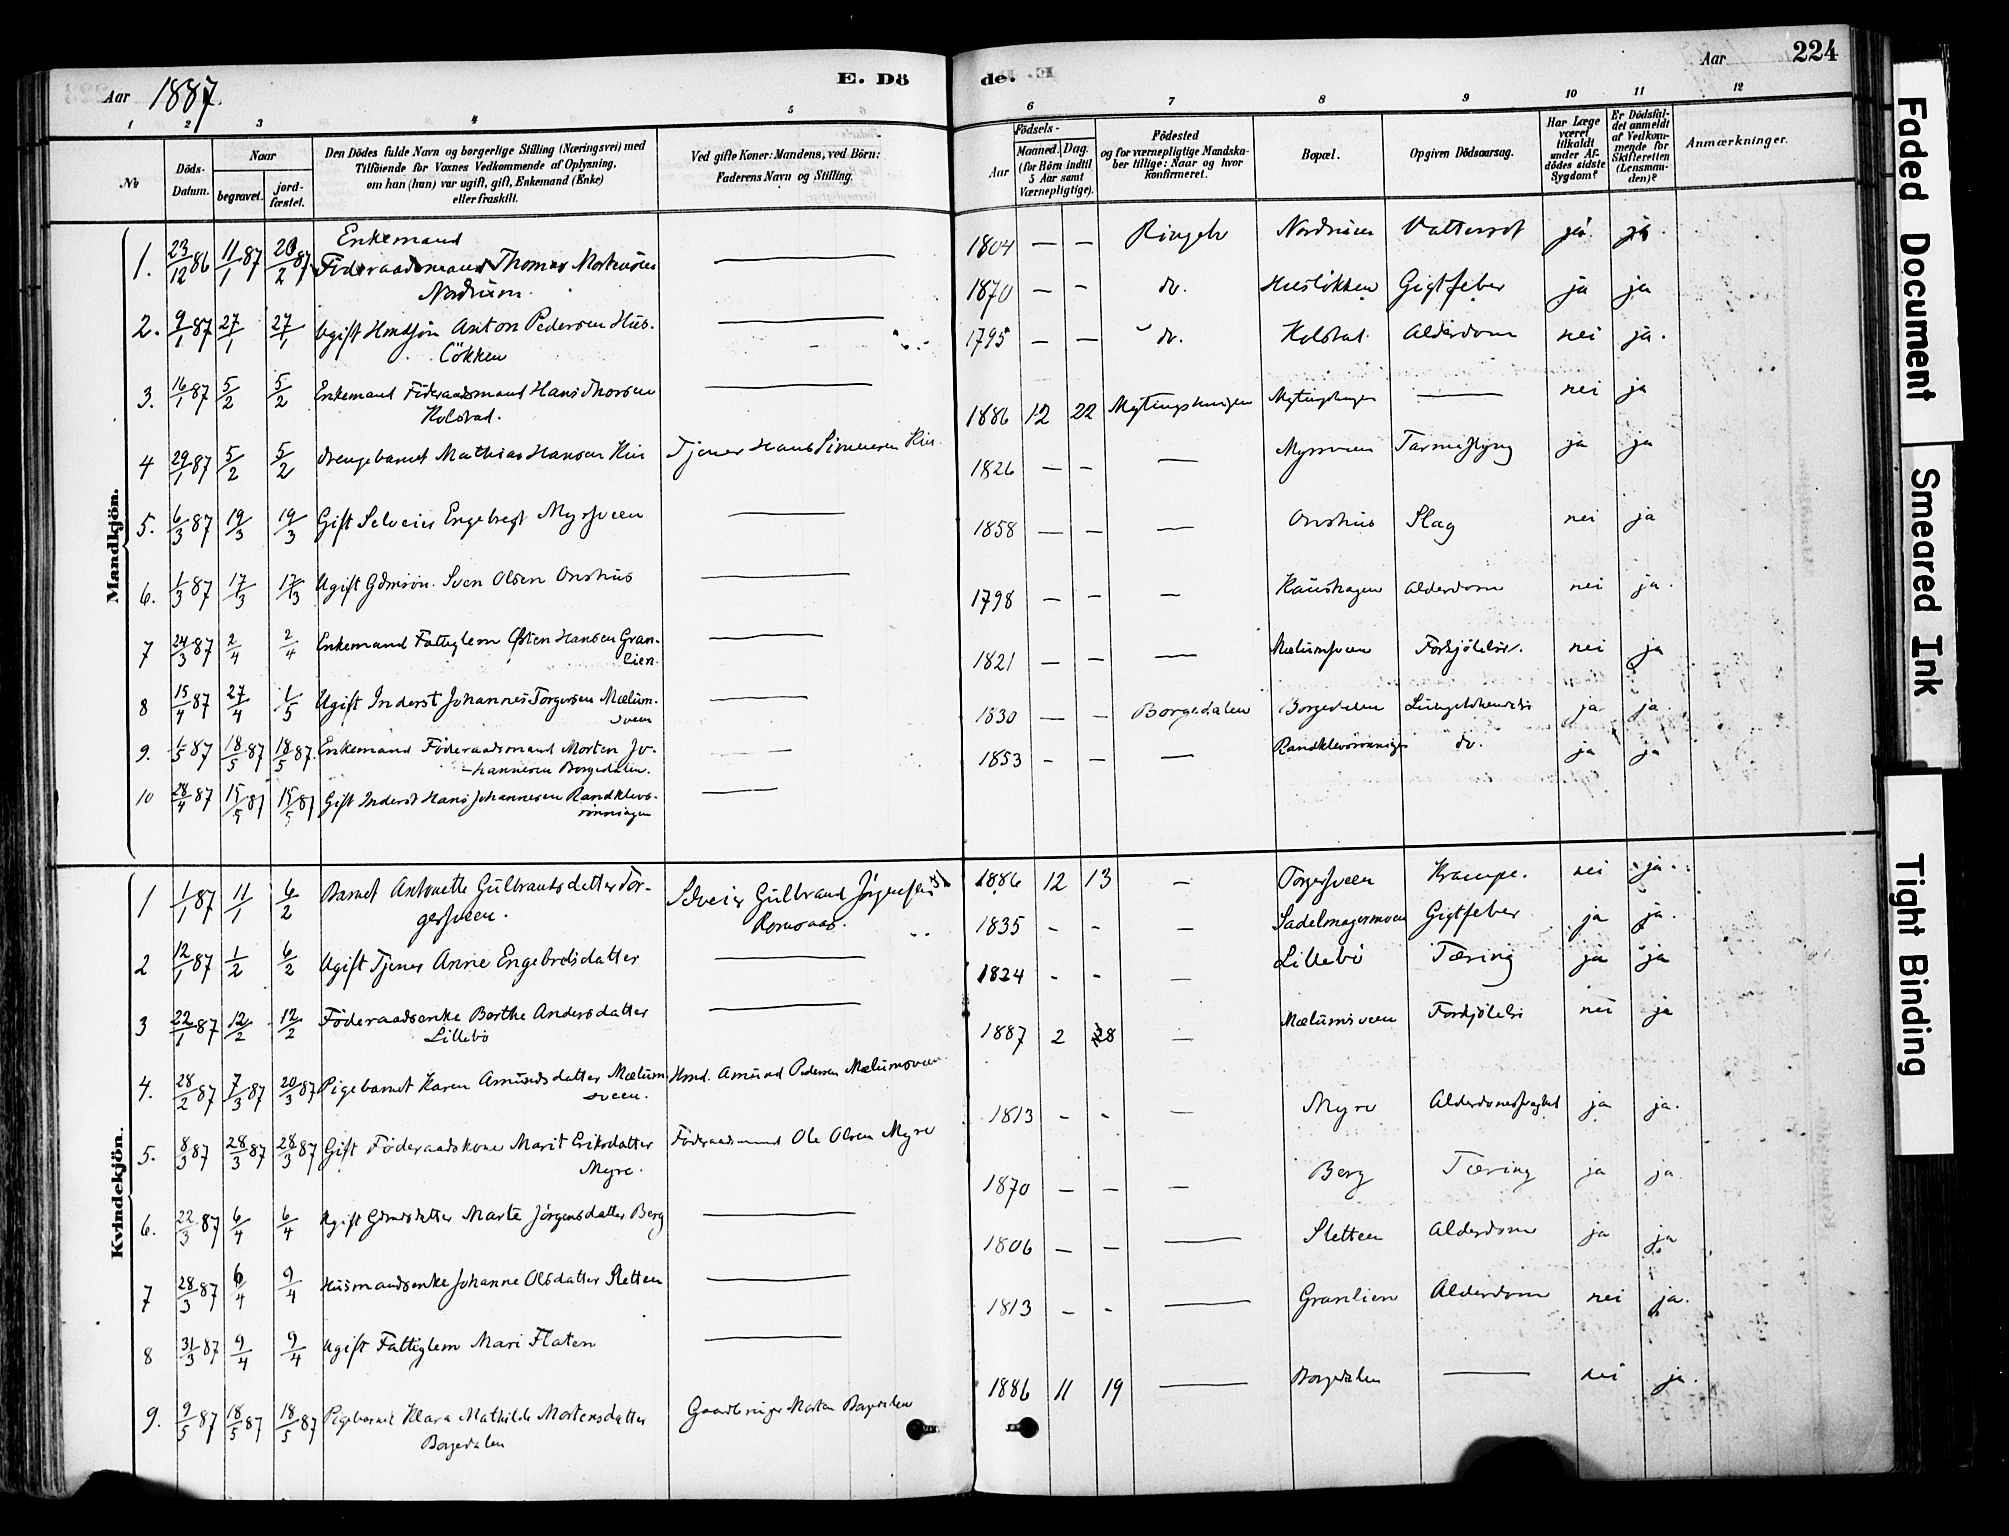 Aar 1887.
E. Dö
de.
Aar
224
1 2 3 4 5 6 7 8 9 10 11 12
No
Döds-
Datum.
Naar
begravet.
jord-
fæstet.
Den Dödes fulde Navn og borgerlige Stilling (Næringsvei) med
Tilföiende for Voxnes Vedkommende af Oplysning,
om han (hun) var ugift, gift, Enkemand (Enke)
eller fraskilt.
Ved gifte Koner: Mandens, ved Börn:
Faderens Navn og Stilling.
Födsels-
Aar
Maaned. Dag.
(for Börn indtil
5 Aar samt
Værnepligtige).
Födested
og for værnepligtige Mandska-
ber tillige: Naar og hvor
konfirmeret.
Bopæl.
Opgiven Dödsaarsag.
Har Læge
været
tilkaldt
under Af-
dödes sidste
Sygdom?
Er Dödsfal-
det anmeldt
af Vedkom-
mende for
Skifteretten
(Lensman-
den)?
Anmærkninger.
Mandkjön.
1. 23/12 86 11/1 87 20/2 87 Enkemand
Föderaadsmand Thomas Mortensen
Nordrum. — 1804 — — Ringebu Nordrum Vattersot ja ja.
2. 9/1 87 27/1 27/1 Ugift Hmdsön Anton Pedersen Hus-
lökken — 1870 — — do. Huslökken Gigtfeber ja ja
3. 16/1 87 5/2 5/2 Enkemand Föderaadsmand Hans Thorsen
Kolstad. — 1795 — — do. Kolstad Alderdom nei ja.
4 29/1 87 5/2 5/2 Drengebarnet Mathias Hansen
Tjener Hans Simensen 1886 12 22 — nei ja
5. 6/3 87 19/3 19/3 Gift Selveier Engebregt Myrsveen — 1826 — — — Myrsveen ja ja
6. 1/3 87 17/3 17/3 Ugift Gdmsön Sven Olsen Onshus — 1858 — — — Onshus Slag nei ja
7 24/3 87 2/4 2/4 Enkemand Fattiglem Østen Hansen Gran-
lien. — 1798 — — — Alderdom nei ja.
8 15/4 87 27/4 1/5 Ugift Inderst Johannes Torgersen Mælum-
sveen — 1821 — — — Mælumsveen nei ja
9. 1/5 87 18/5 87 18/5 87 Enkemand Föderaadsmand Morten Jo-
hannesen Borgedalen. — 1830 — — Borgedalen Borgedalen ja ja
10 28/4 87 15/5 87 15/5 87 Gift Inderst Hans Johannesen Randklevs-
rönningen — 1853 — — — Randklevsrönningen do. ja ja
Kvindekjön.
1 1/1 87 11/1 6/2 Barnet Antonette Gulbrandsdatter Tor-
gersveen. Selveier Gulbrand Jörgensen
1886 12 13 — Torgersveen Krampe. nei ja
2 12/1 87 1/2 6/2 Ugift Tjener Anne Engebretsdatter — 1835 - - — Sadelmagermoen Gigtfeber ja ja.
3 22/1 87 12/2 12/2 Föderaadsenke Berthe Andersdatter
Lillebö — 1824 - - — Lillebö Tæring ja ja
4. 28/2 87 7/3 87 20/3 87 Pigebarnet Karen Amundsdatter Mælum-
sveen. Hmd. Amund Pedersen Mælumsveen 1887 2 28 — Mælumsveen Forkjölelse nei ja
5. 8/3 87 28/3 87 28/3 87 Gift Föderaadskone Marit Eriksdatter
Myre. Föderaadsmand Ole Olsen Myre 1813 - - — Myre Alderdomssvaghed ja ja.
6. 22/3 87 6/4 6/4 Ugift Gdmdsdatter Marte Jörgensdatter Berg — 1870 — — — Berg Tæring ja ja
7 28/3 87 6/4 9/4 Husmandsenke Johanne Olsdatter Sletten — 1806 — — — Sletten Alderdom ja ja
8 31/3 87 9/4 9/4 Ugift Fattiglem Mari Flaten — 1813 - - — Granlien Alderdom nei ja.
9. 9/5 87 18/5 87 18/5 87 Pigebarnet Klara Mathilde Mortensdatter
Borgedalen Gaardbruger Morten Borgedalen 1886 11 19 — Borgedalen — nei ja.
Faded Document
Smeared Ink
Tight Binding